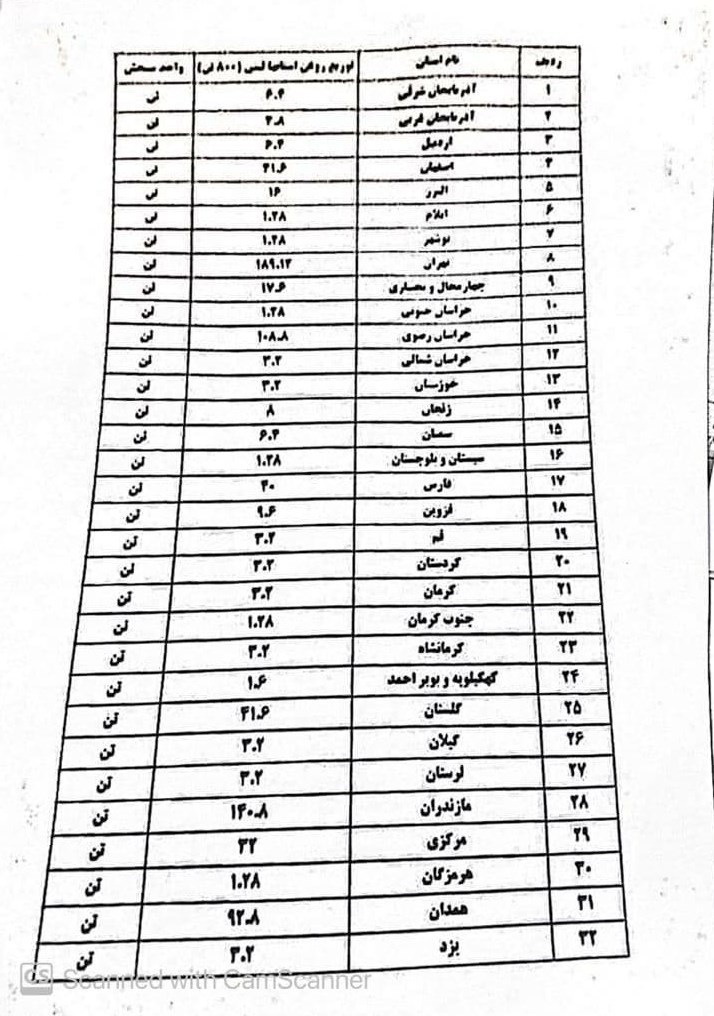 ردیف نام استان توزیع روغن استانها لیس (۸۰۰ تن) واحد سنجش
۱ آذربایجان شرقی ۶.۴ تن
۲ آذربایجان غربی ۴.۸ تن
۳ اردبیل ۶.۴ تن
۴ اصفهان ۴۱.۶ تن
۵ البرز ۱۶ تن
۶ ایلام ۱.۲۸ تن
۷ بوشهر ۱.۲۸ تن
۸ تهران ۱۸۹.۱۲ تن
۹ چهارمحال و بختیاری ۱۷.۶ تن
۱۰ خراسان جنوبی ۱.۲۸ تن
۱۱ خراسان رضوی ۱۰۸.۸ تن
۱۲ خراسان شمالی ۳.۲ تن
۱۳ خوزستان ۳.۲ تن
۱۴ زنجان ۸ تن
۱۵ سمنان ۶.۴ تن
۱۶ سیستان و بلوچستان ۱.۲۸ تن
۱۷ فارس ۴۰ تن
۱۸ قزوین ۹.۶ تن
۱۹ قم ۳.۲ تن
۲۰ کردستان ۳.۲ تن
۲۱ کرمان ۳.۲ تن
۲۲ جنوب کرمان ۱.۲۸ تن
۲۳ کرمانشاه ۳.۲ تن
۲۴ کهگیلویه و بویر احمد ۱.۶ تن
۲۵ گلستان ۴۱.۶ تن
۲۶ گیلان ۳.۲ تن
۲۷ لرستان ۳.۲ تن
۲۸ مازندران ۱۴۰.۸ تن
۲۹ مرکزی ۳۲ تن
۳۰ هرمزگان ۱.۲۸ تن
۳۱ همدان ۹۲.۸ تن
۳۲ یزد ۳.۲ تن
CS Scanned with CamScanner